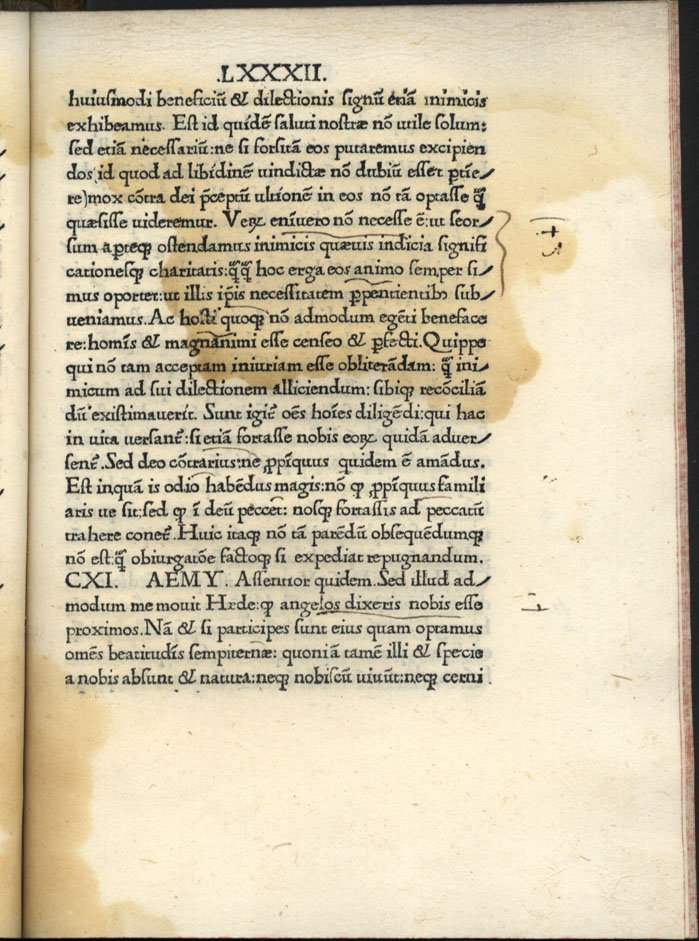 .LXXXII.
huiusmodi beneficiū & dilectionis signū etiā inimicis
exhibeamus. Est id quidē saluti nostræ nō utile solum:
sed etiā necessariū: ne si forsitā eos putaremus excipien
dos id quod ad libidinē uindictæ nō dubiū esset ꝑtīe⸗
re) mox cōtra dei p̄ceptū ultionē in eos nō tā optasse q̄
quæsisse uideremur. Veꝝ eniuero nō necesse ē: ut seor⸗
sum a ꝑteqꝫ ostendamus inimicis quæuis indicia signifi
cationesqꝫ charitatis: q̄q̄ hoc erga eos animo semper si⸗
mus oportet: ut illis ip̄is necessitatem ꝑpentientibꝰ sub⸗
ueniamus. Ac hosti quoqꝫ nō admodum egēti beneface
re: homīs & magnanimi esse censeo & ꝑfecti. Quippe
qui nō tam acceptam iniuriam esse obliterādam: q̄ ini⸗
micum ad sui dilectionem alliciendum: sibiqꝫ recōciliā
dū existimauerit. Sunt igit̄ oēs hoīes diligēdi: qui hac
in uita uersant̄: si etiā fortasse nobis eoꝝ quidā aduer⸗
sent̄. Sed deo cōtrarius: ne ꝓpīquus quidem ē amādus.
Est inquā is odio habēdus magis: nō ꝙ ꝓpīquus famili
aris ue sit: sed ꝙ ī deū peccet: nosqꝫ fortassis ad peccatū
trahere conet̄. Huic itaqꝫ nō tā parēdū obsequēdumqꝫ
nō est: q̄ obiurgatōe factoqꝫ si expediat repugnandum.
CXI. AEMY. Assentior quidem. Sed illud ad⸗
modum me mouit Hæde: ꝙ angelos dixeris nobis esse
proximos. Nā & si participes sunt eius quam optamus
omēs beatitudīs sempiternæ: quoniā tamē illi & specie
a nobis absunt & natura: neqꝫ nobiscū uiuūt: neqꝫ cerni.